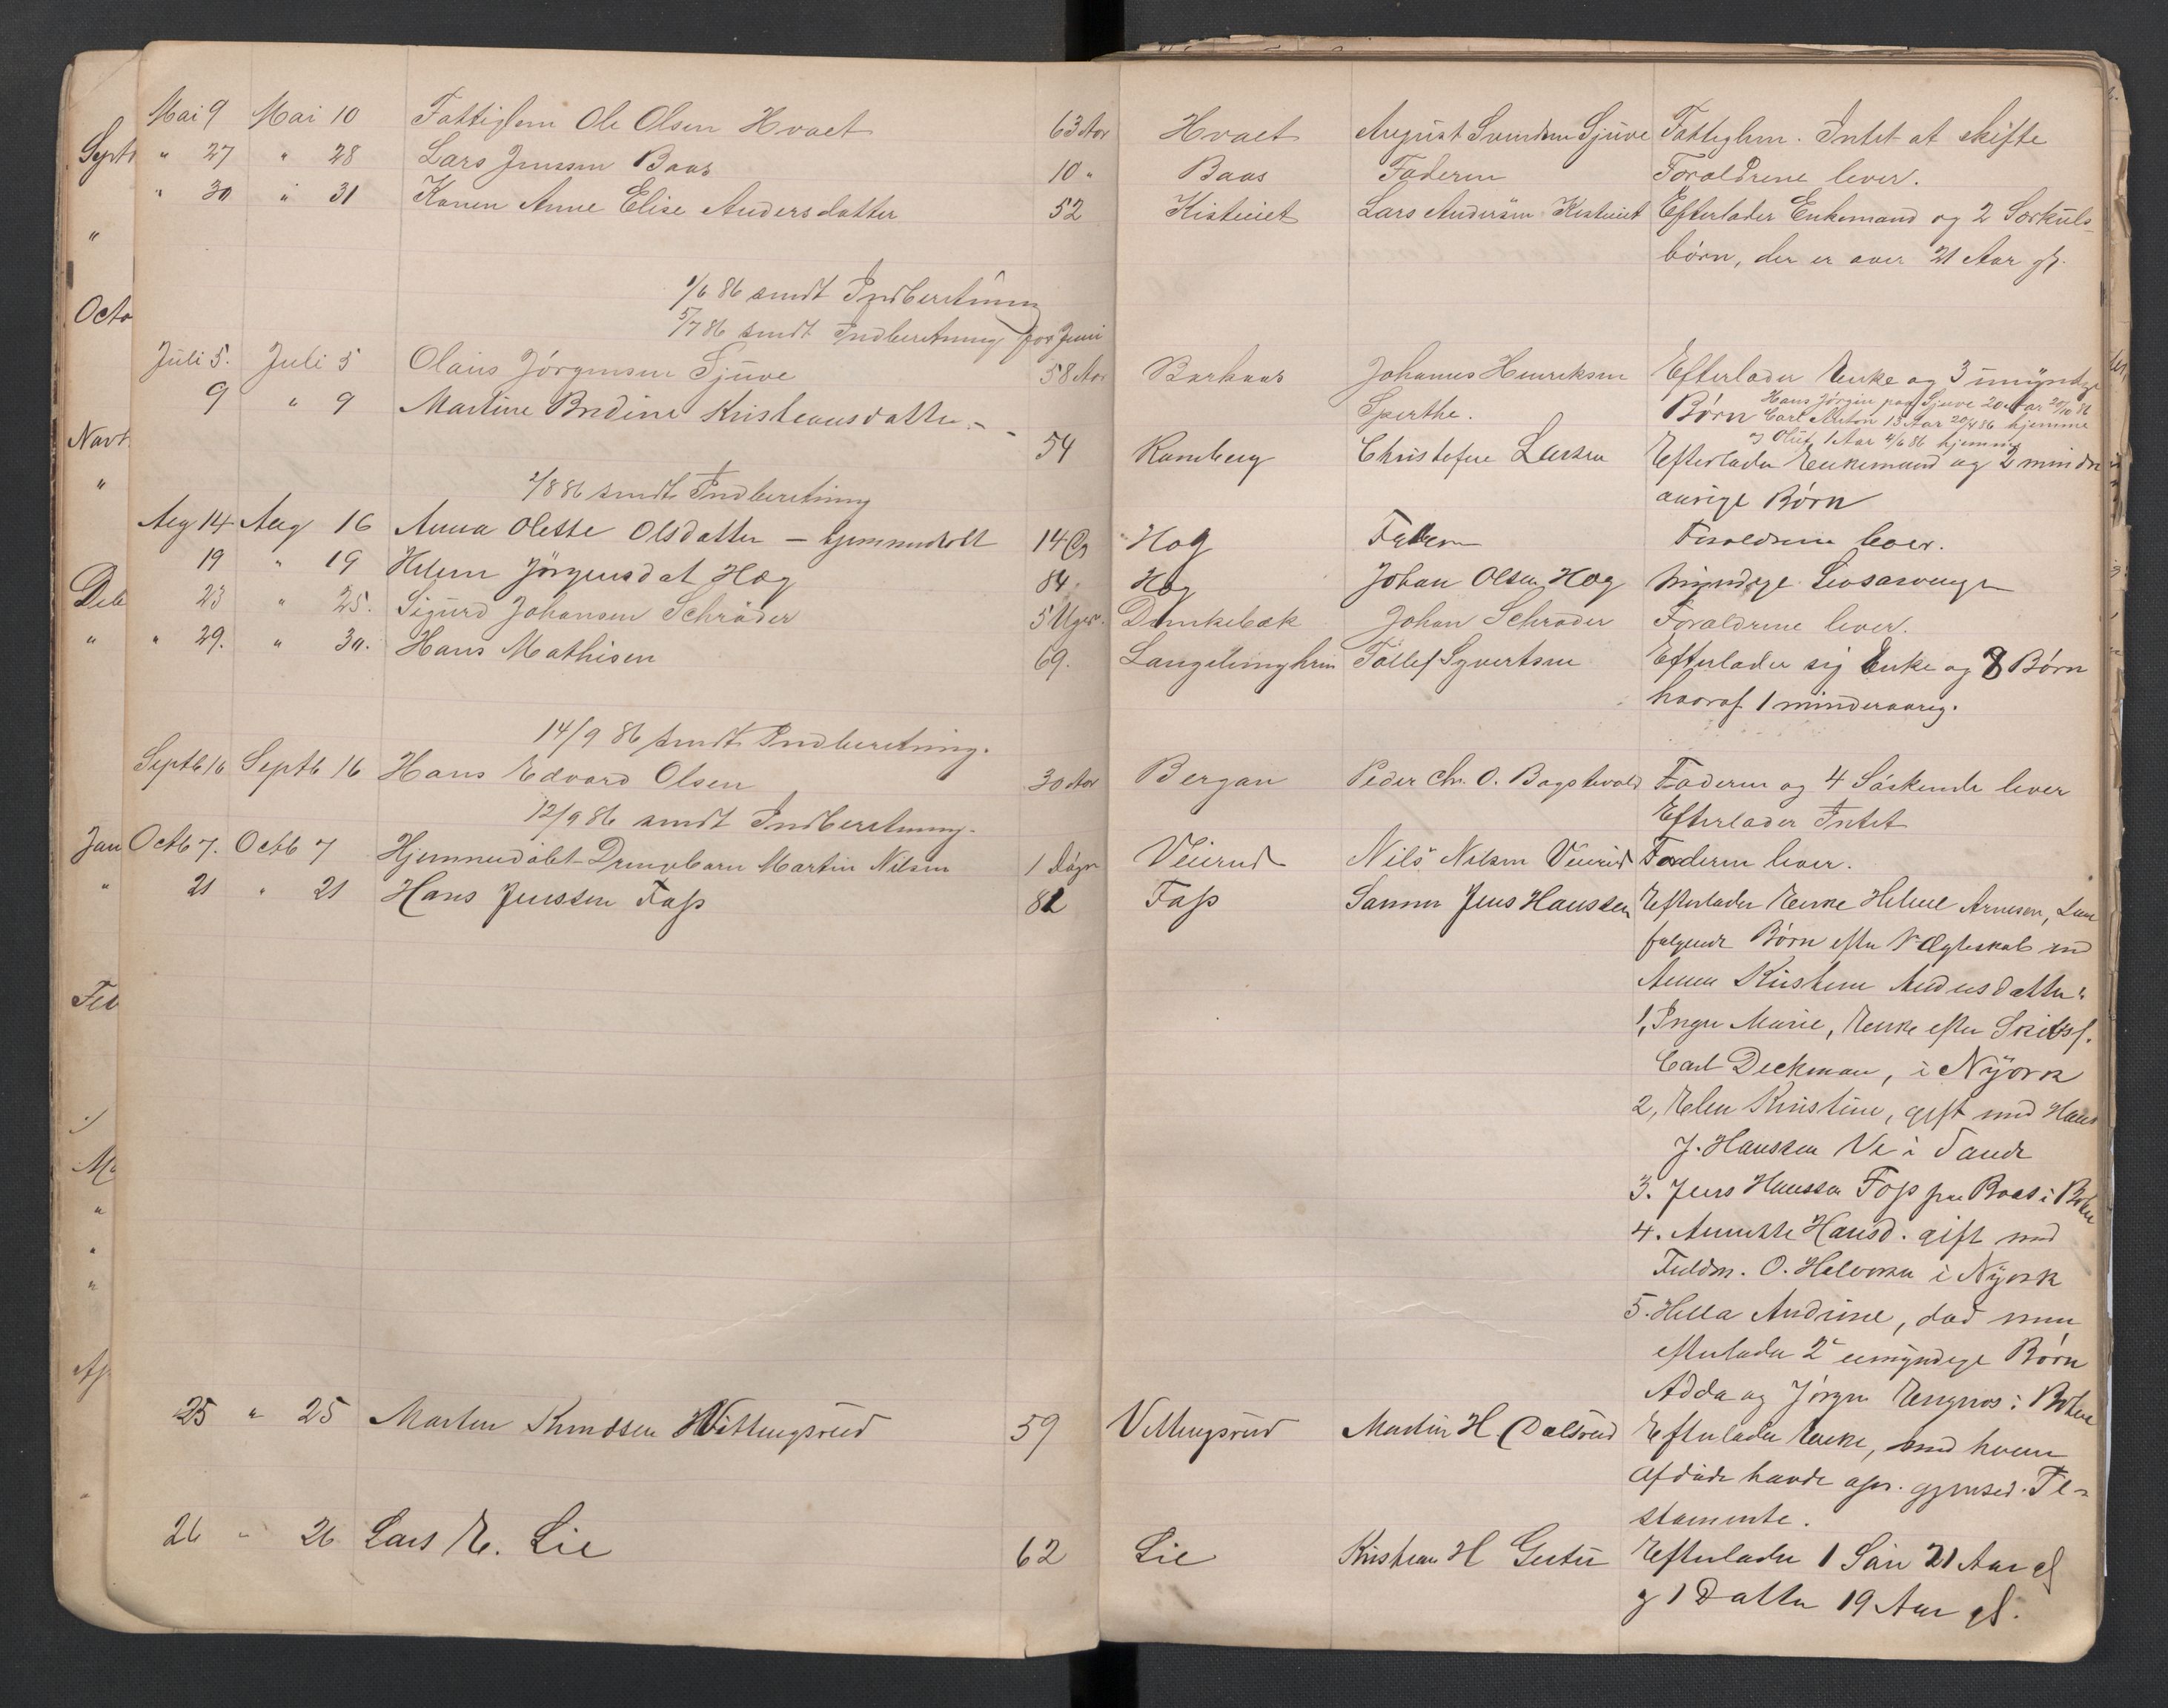 Mai 9 Mai 10 Fattiglem Ole Olsen Hvaet 63 Aar Hvaet August Svendsen Sjuve Fattiglem. Intet at skifte
" 27 " 28 Lars Jenssen Baas 10 " Baas Faderen Forældrene lever.
" 30 " 31 Konen Anne Elise Andersdatter 52 Kisteiet Lars Andersen Kisteiet Efterlader Enkemand og 2 Særkuls
børn, der er over 21 Aar gl.
1/6 86 sendt Indberetning
5/7 86 sendt Indberetning for Juni
Juli 5. Juli 5 Olaus Jørgensen Sjuve 58 Aar Barhaas Johannes Henriksen Efterlader Enke og 3 umyndige
Spirthe. Børn Hans Jørgen paa Sjuve 20 Aar 20/10 86
Carl Anton 13 Aar 20/4 86 hjemme
og Oluf 1 Aar 4/6 86 hjemme
9 " 9 Martine Bredine Kristiansdatter - - 54 Ramberg Christofer Larsen Efterlader Enkemand og 2 mindre
aarige Børn
2/8 86 sendt Indberetning
Aug 14 Aug 16 Anna Olette Olsdatter - hjemmedøbt 14 Dg Hog Faderen Forældrene lever.
19 " 19 Helene Jörgensdat Hæg 84. Hog Johan Olsen Hæg Myndige Livsarvinger
23 " 25. Sigurd Johansen Schrøder 5 Uger. Dunkebæk Johan Schrøder Forældrene lever.
" 29. " 30. Hans Mathisen 69. Langelinghrin Tollef Syvertsen Efterlader sig Enke og 8 Børn
hvoraf 1 mindreaarig.
14/9 86 sendt Indberetning.
Septb 16 Septb 16 Hans Edvard Olsen 30 Aar Bergan Peder Chr. O. Bogstvold Faderen og 4 Söskende lever
Efterlader Intet
12/9 86 sendt Indberetning.
Octb 7. Octb 7 Hjemmedøbt Drengebarn Martin Nilsen 1 Døgn Veierud Nils Nilsen Veierud Faderen lever.
21 " 21 Hans Jenssen Fass 82 Fass Sønnen Jens Hanssen Efterlader Enke Helene Arnesen, samt
følgende Børn efter Ægteskab med
Anne Kirstine Andersdatter:
1, Inger Marie, Enke efter Skibsf.
Carl Deckman, i Nÿork
2, Elen Kristine, gift med Hans
J. Hanssen Ve i Sande
3. Jens Hanssen Foss paa Baas i Botne
4. Annette Hansd. gift med
Fuldm. O. Halvorsen i Nÿork
5. Hella Andrine, død men
efterlader 2 umyndige Børn
Adda og Jörgen Engnes i Botne
25 " 25 Morten Knudsen Vittingsrud 59 Vittingsrud Martin H Dalsrud Efterlader Enke, med hvem
Afdøde havde opr. gjensid. Te-
stamente.
26 " 26 Lars E. Lie 62 Lie Kristian H Gutu Efterlader 1 Søn 21 Aar gl
og 1 Datter 19 Aar gl.
Septb
"
Octo
Novb
"
Deb
"
Jan
"
Feb
Ma
"
"
"
Ap